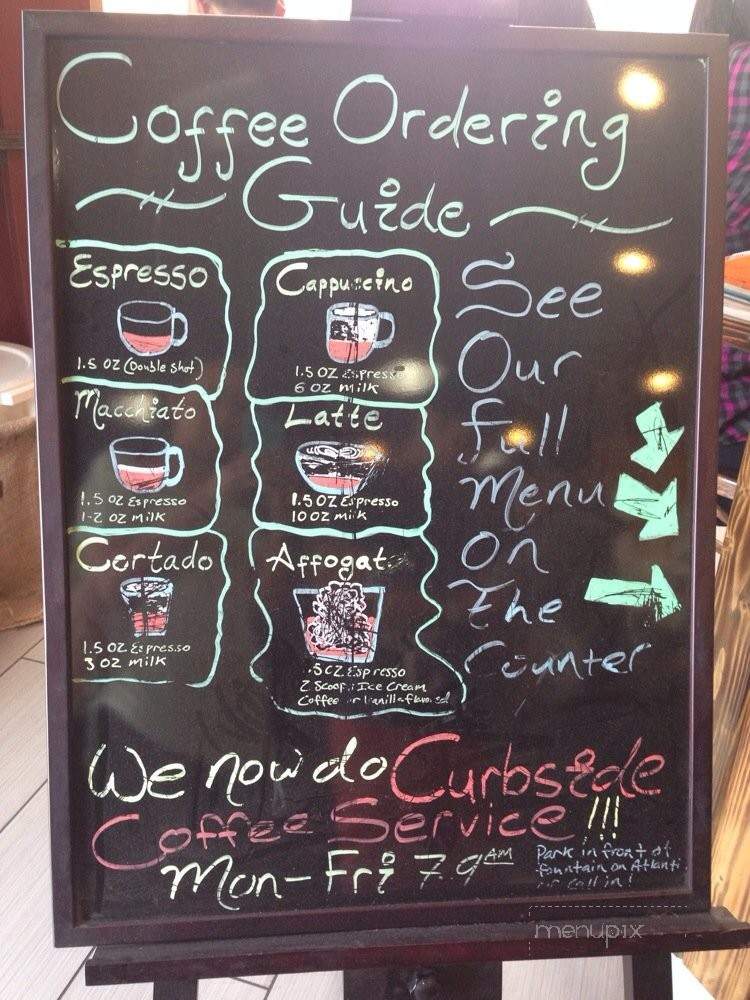 Coffee Ordering
Guide
Espresso
1.5 oz (Double shot)
Macchiato
1.5 oz Espresso
1-2 oz milk
Cortado
1.5 oz Espresso
3 oz milk
Cappuccino
1.5 oz Espresso
6 oz milk
Latte
1.5 oz Espresso
10 oz milk
Affogat
.5 oz Espresso
2 Scoops Ice Cream
Coffee or Vanilla flavored
See
Our
full
Menu
on
The
Counter
We now do Curbside
Coffee Service!!!
Mon-Fri 7-9 AM
Park in front of
fountain on Atlanti
or call in!
menupix